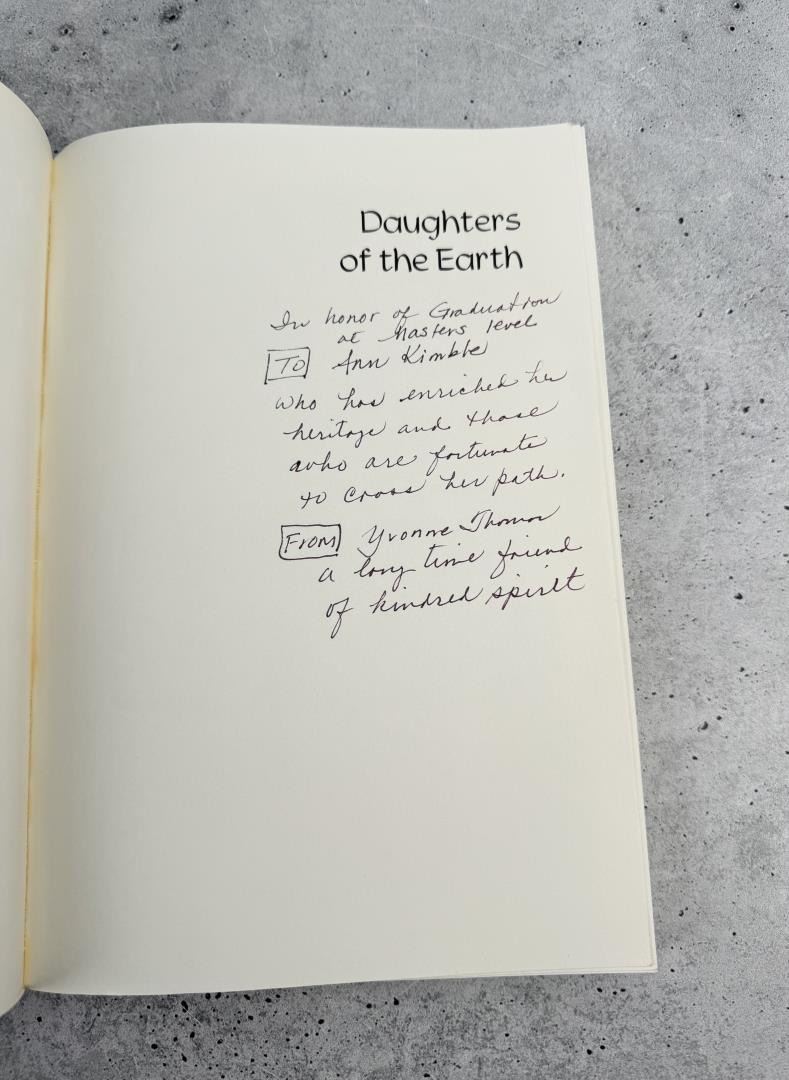 Daughters
of the Earth
In honor of Graduation
at Masters level
To Ann Kimble
who has enriched her
heritage and those
who are fortunate
to cross her path.
From Yvonne Thomas
a long time friend
of kindred spirit